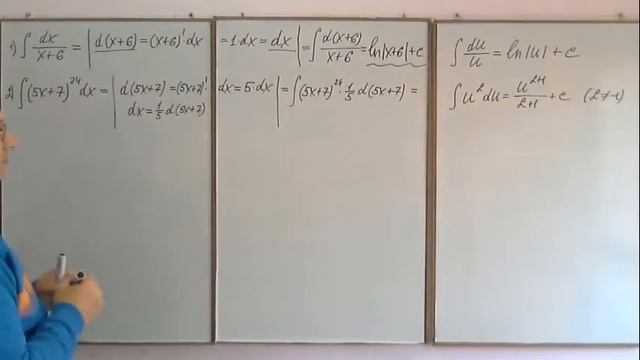 1) ∫ dx/(x+6) = | d(x+6) = (x+6)' · dx = 1·dx = dx | = ∫ d(x+6)/(x+6) = ln|x+6| + c
2) ∫ (5x+7)^24 dx = | d(5x+7) = (5x+7)' · dx = 5·dx | = ∫ (5x+7)^24 · 1/5 d(5x+7) =
dx = 1/5 d(5x+7)
∫ du/u = ln|u| + c
∫ u^2 du = u^(2+1)/(2+1) + c (2≠-1)